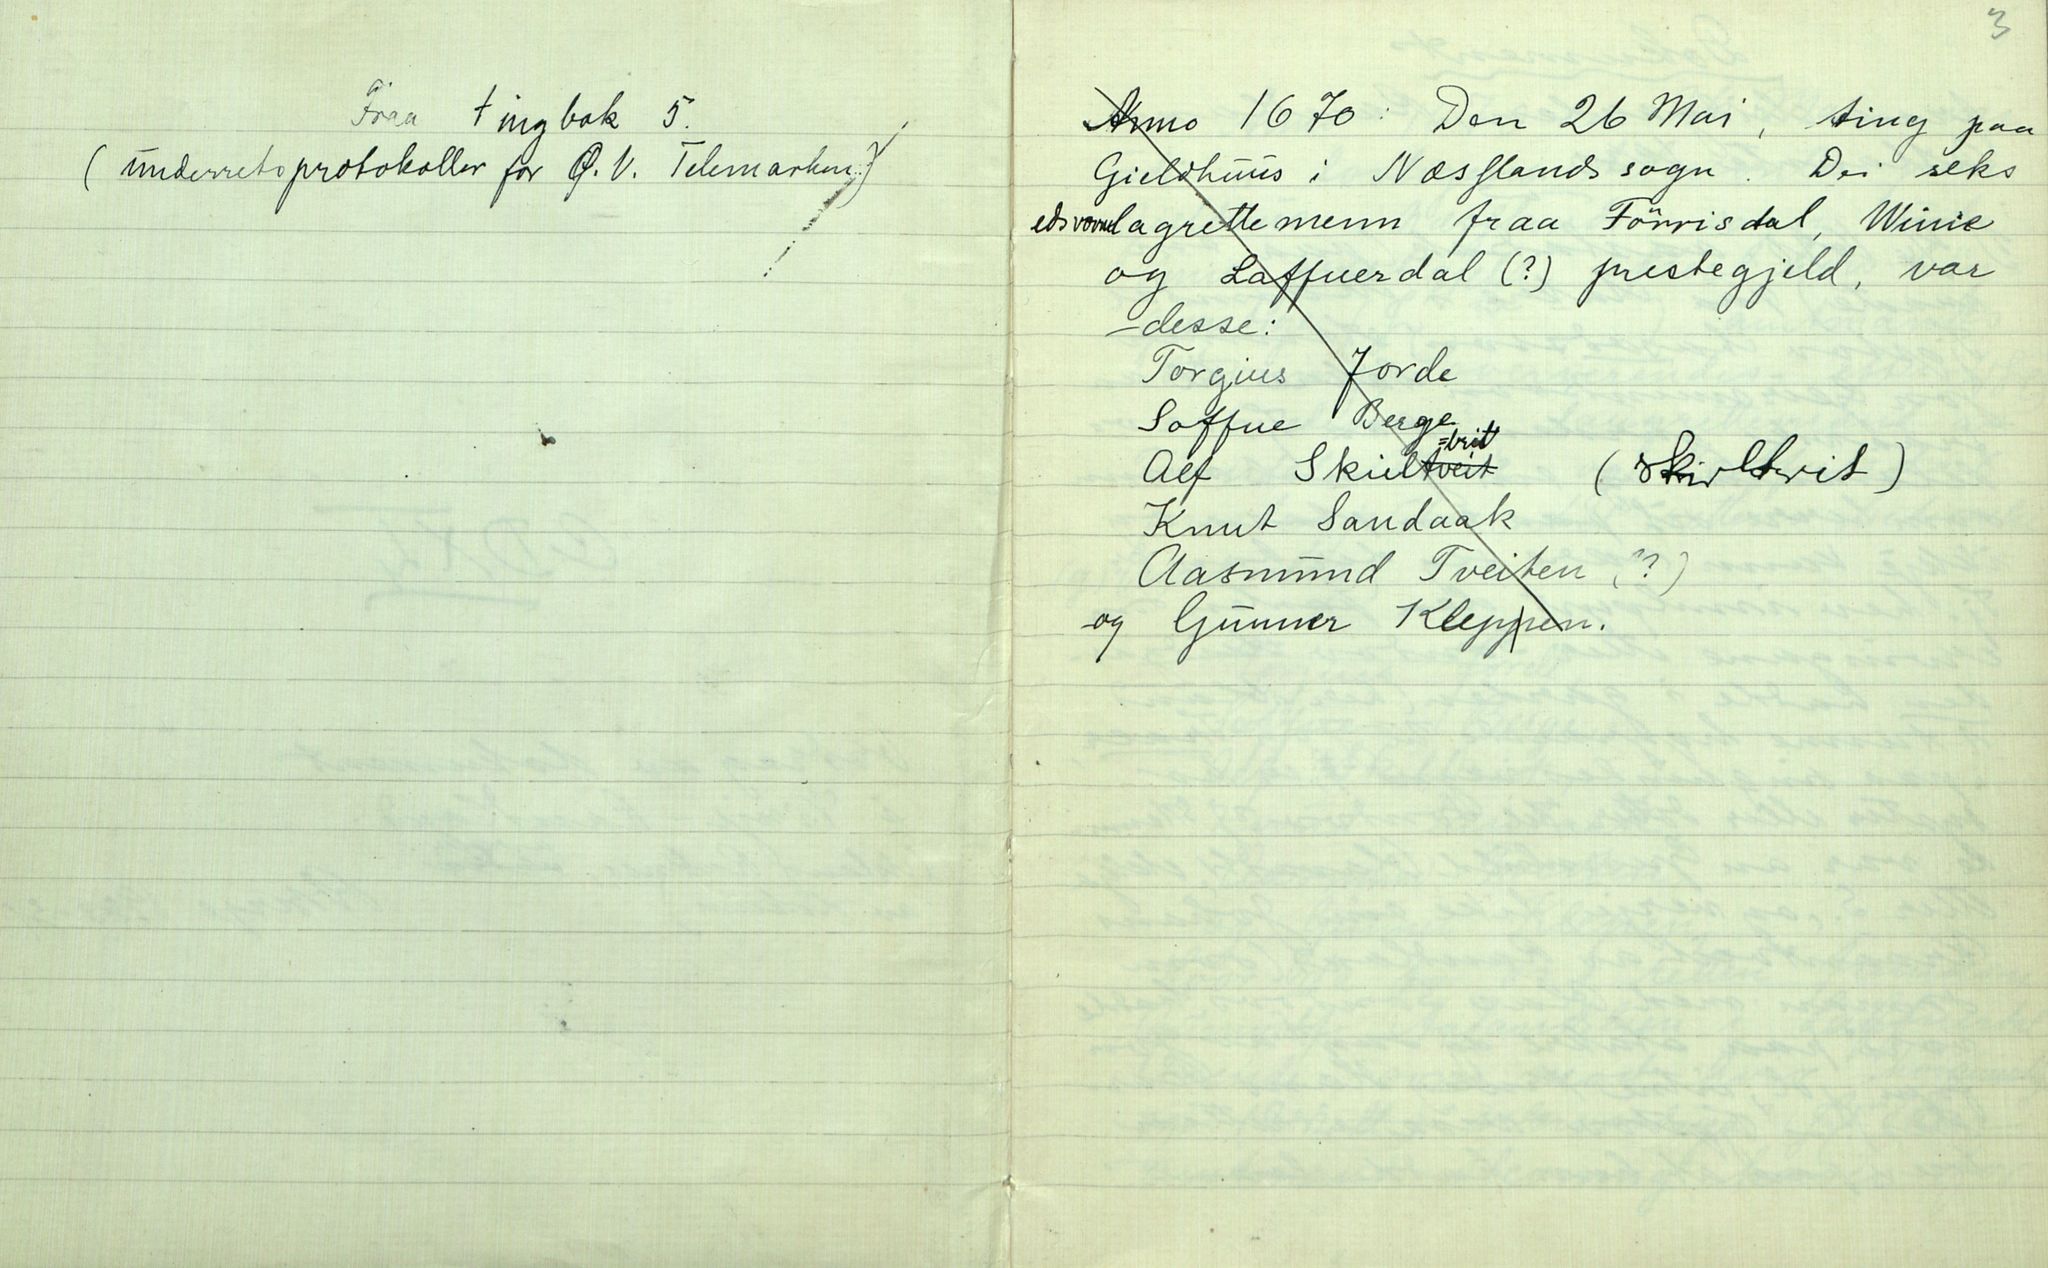 Fraa tingbok 5.
(underretsprotokoller for Ø. V. Telemarken.)
3
Anno 1670: Den 26 Mai, ting paa
Gieldhuus i Næsslands sogn. Dei seks
edsvorne lagrettemenn fraa Förrisdal, Winie
og Laffuerdal (?) prestegjeld, var
desse:
Torgius Jorde
Soffue Berge
=brit
Alf Skieltveit (Skieltvit)
Knut Sandaak
Aasmund Tveiten (?)
og Gunner Kleppen.